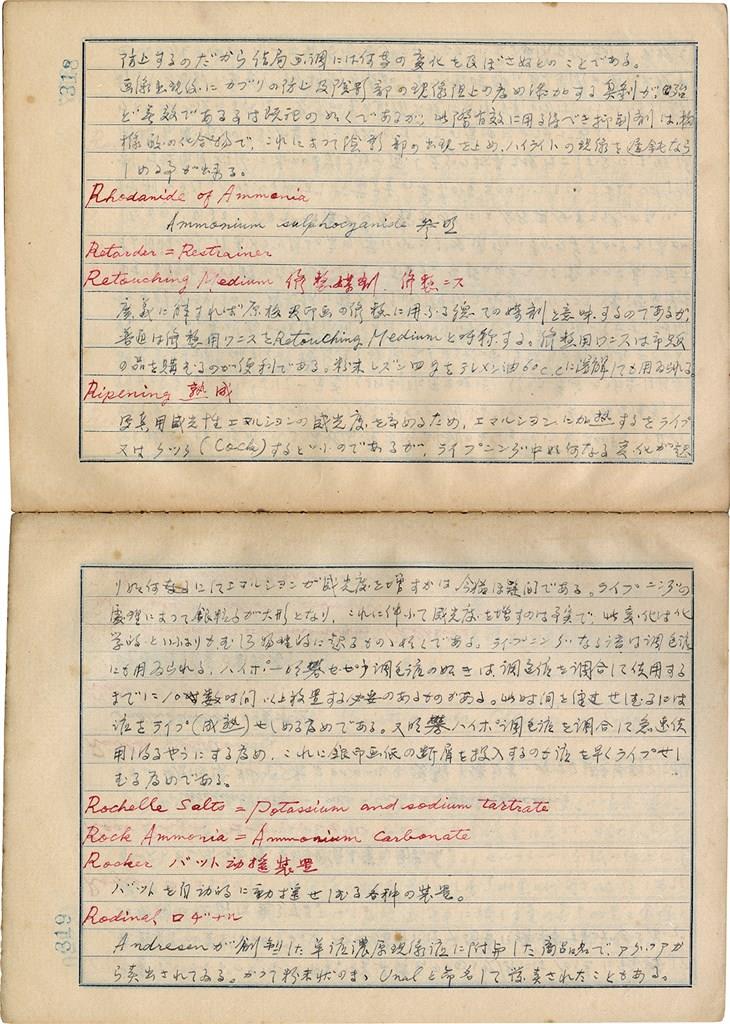 318
防止するのだから結局画調には何等の変化を及ぼさぬとのことである。
画像出現後にカブリの防止及陰影部の現像阻止の為め添加する臭剤が、殆
ど無効である事は既記の如くであるが、此際有効に用ゐ得べき抑制剤は枸
櫞酸の化合物で、これによつて陰影部の出現を止め、ハイライトの現像を遅鈍なら
しめる事が出来る。
Rhodanide of Ammonia
Ammonium sulphocyanide 参照
Retarder = Restrainer
Retouching Medium 修整媒剤. 修整ニス
広義に解すれば原板又印画の修整に用ふる総ての媒剤を意味するのであるが、
普通は修整用ワニスをRetouching Mediumと呼称する。修整用ワニスは市販
の品を購むるのが便利である。粉末レズン四gをテレメン油60c.c.に溶解しても用ゐられる
Ripening 熟成
写真用感光性エマルションの感光度を高めるため、エマルションに加熱するをライプ
又はクック(Cook)するといふのであるが、ライプニング中如何なる変化が起
319
り如何なるにてエマルションが感光度を増すかは今猶ほ疑問である。ライプニングの
処理によつて銀粒子が大形となり、これに伴ふて感光度を増すのは事実で、此変化は化
学的といふよりもむしろ物性的に起るものゝ如くである。ライプニングなる語は調色液
にも用ゐられる、ハイポー明礬セピヤ調色液の如きは調色液を調合して使用する
までに10数時間以上放置する必要のあるものがある。此時間を経過せしむるには
液をライプ(成熟)せしめる為めである。又明礬ハイポ調色液を調合して急速使
用し得るやうにする為め、これに銀印画紙の断屑を投入するのも液を早くライプせし
むる為めである。
Rochelle Salts = Potassium and sodium tartrate
Rock Ammonia = Ammonium Carbonate
Rocker バット動揺装置
バットを自動的に動揺せしむる各種の装置。
Rodinal ロヂナル
Andresenが創製した単液濃厚現像液に附与した商品名で、アグフアか
ら売出されてゐる。かつて粉末状のまゝUnalと命名して発売されたこともある。